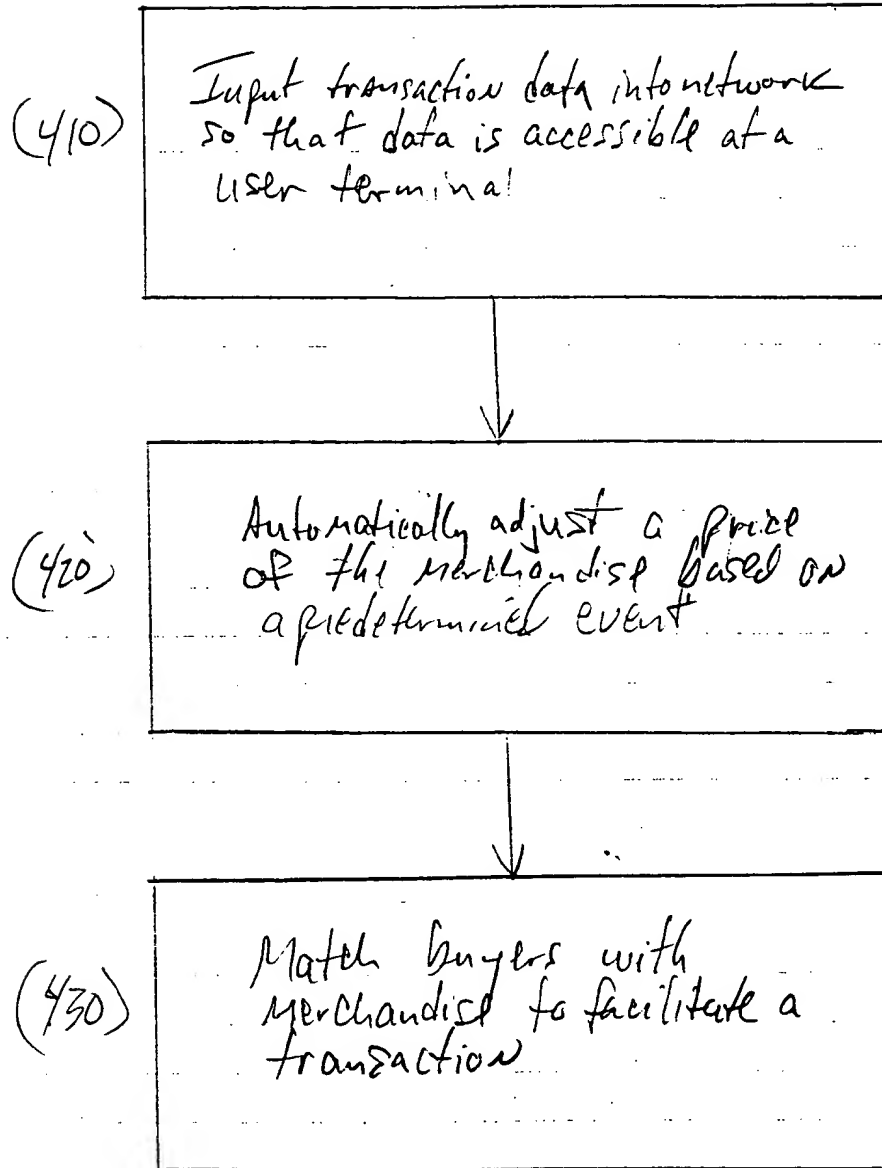 (410)
Input transaction data into network
so that data is accessible at a
user terminal
(420)
Automatically adjust a price
of the merchandise based on
a predetermined event
(430)
Match buyers with
merchandise to facilitate a
transaction